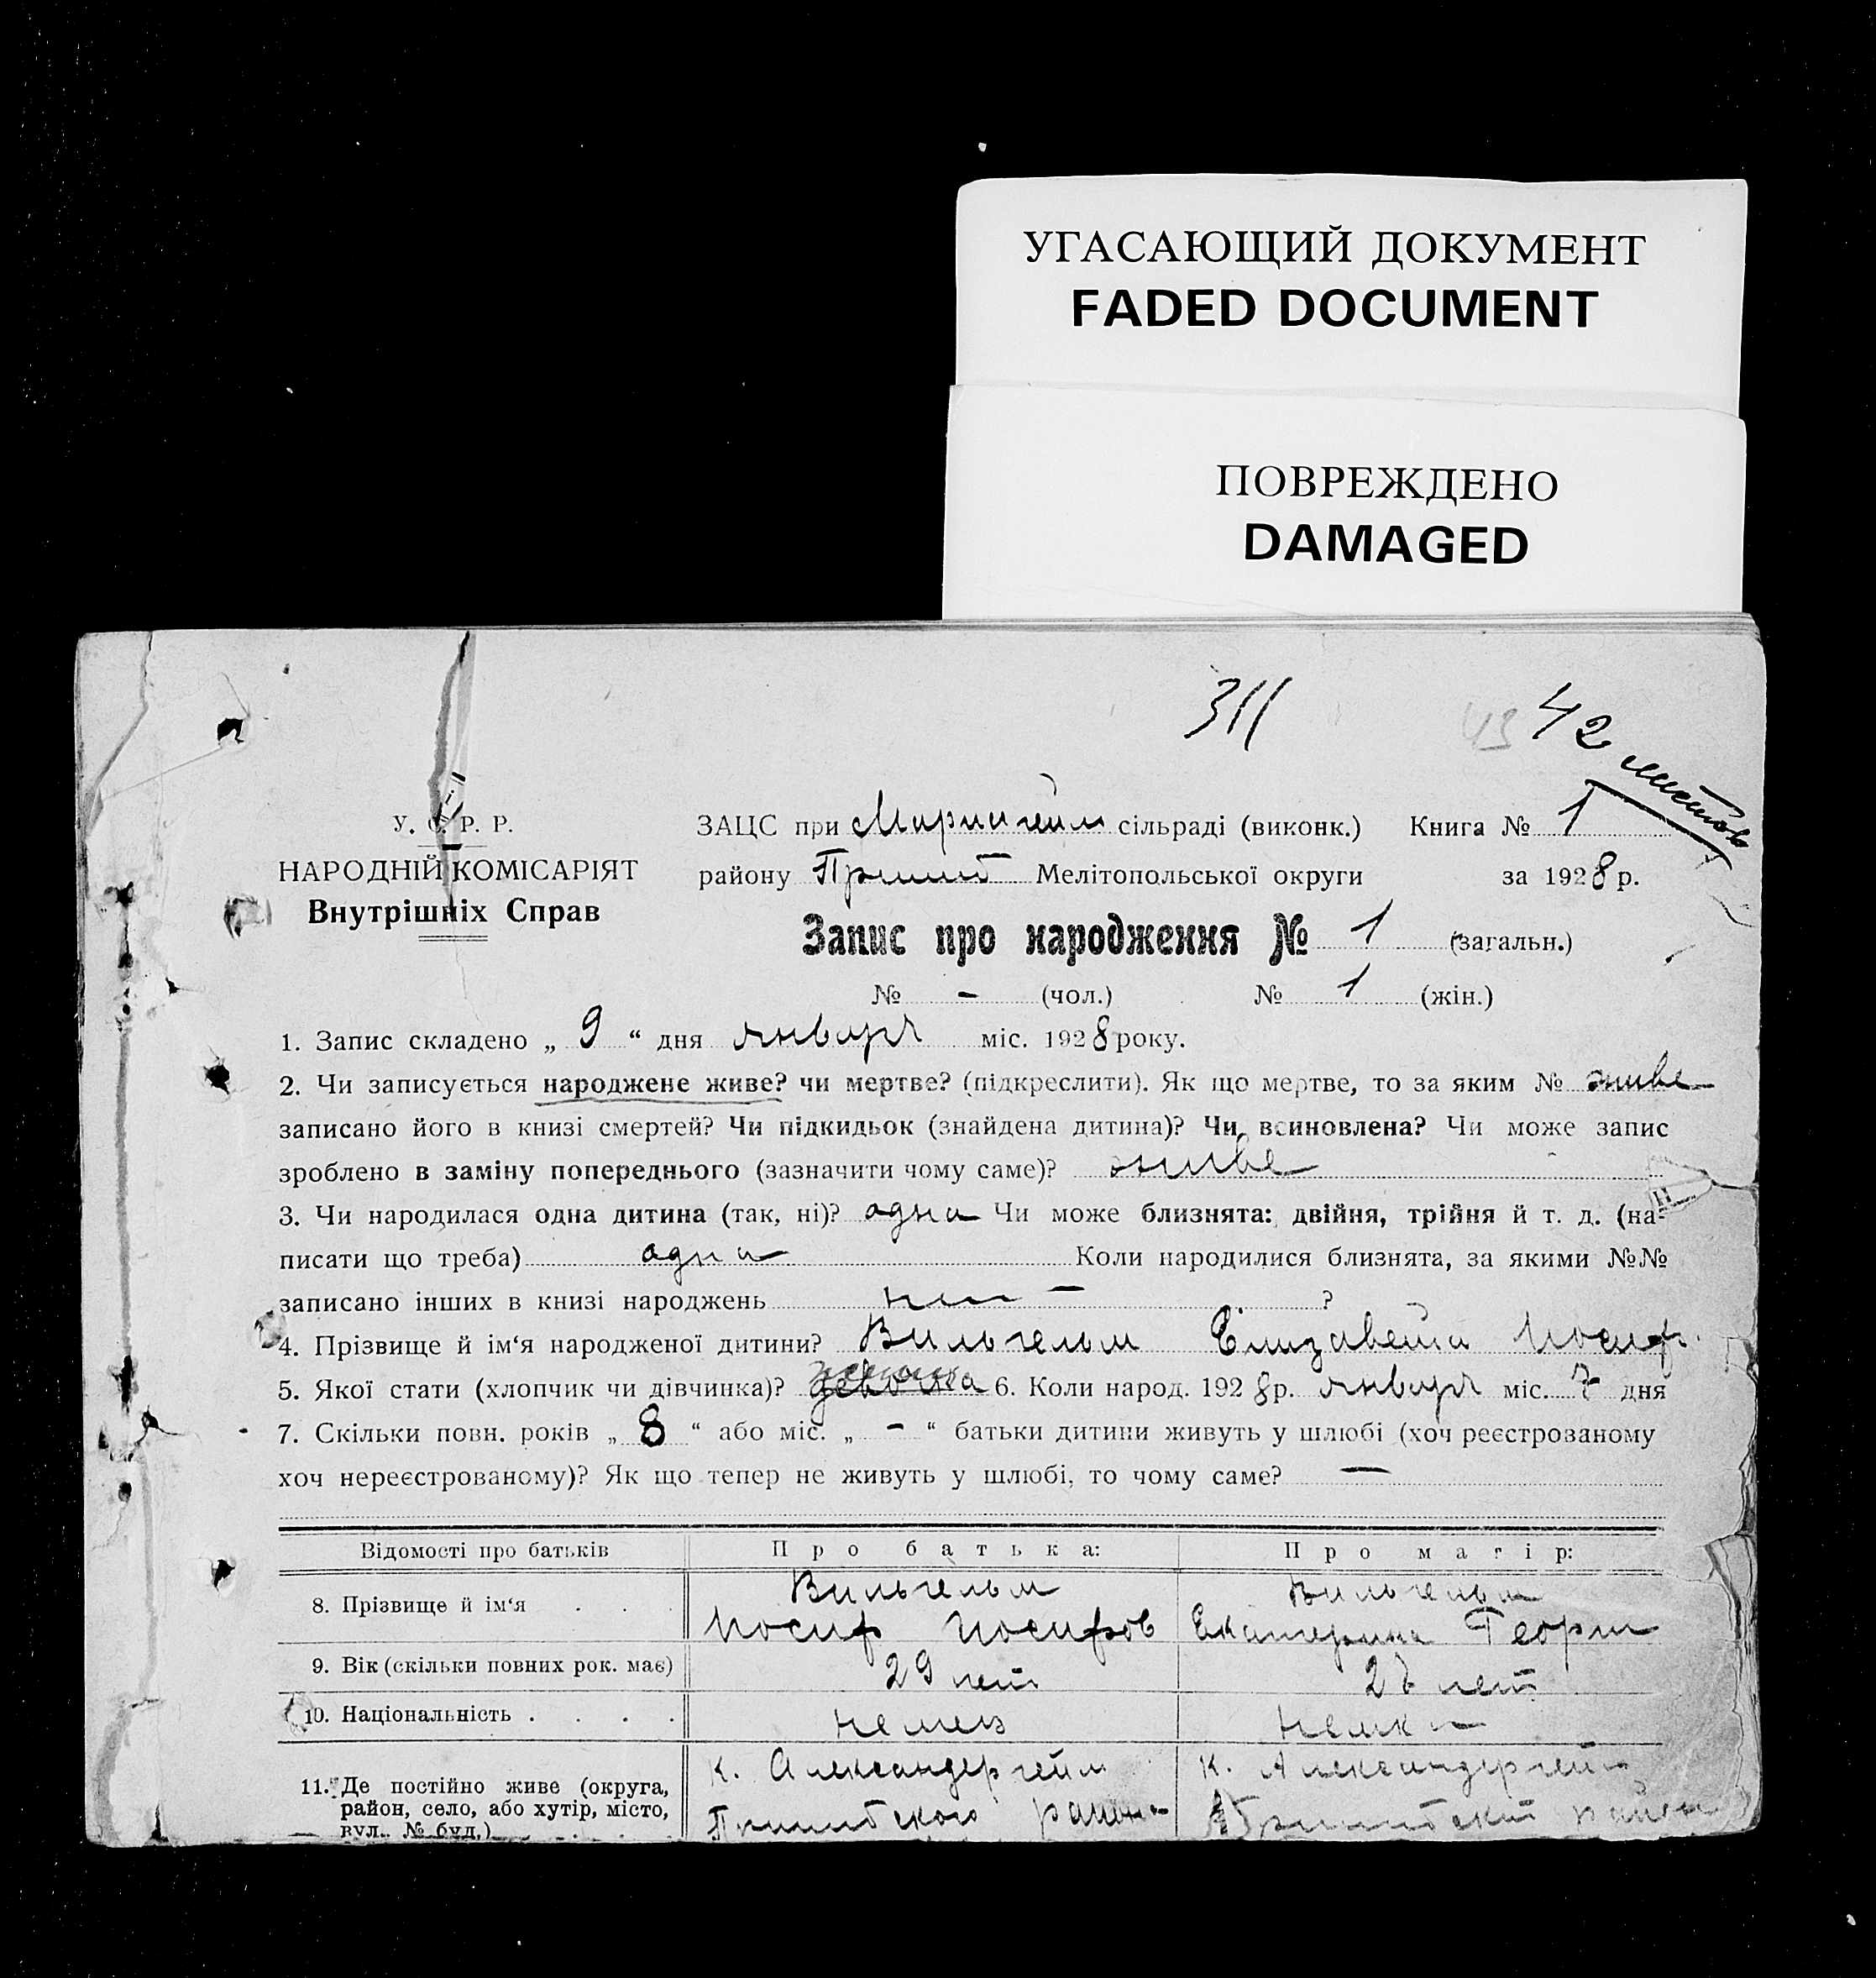 УГАСАЮЩИЙ ДОКУМЕНТ
FADED DOCUMENT
ПОВРЕЖДЕНО
DAMAGED
311
43 42 листов
У. С. Р. Р.
НАРОДНІЙ КОМІСАРІЯТ
Внутрішніх Справ
ЗАЦС при Мариагейм сільраді (виконк.) Книга № 1
району Пришиб Мелітопольської округи за 1928 р.
Запис про народження № 1 (загальн.)
№ - (чол.) № 1 (жін.)
1. Запис складено „ 9 “ дня январь міс. 1928 року.
2. Чи записується народжене живе? чи мертве? (підкреслити). Як що мертве, то за яким № живе
записано його в книзі смертей? Чи підкидьок (знайдена дитина)? Чи всиновлена? Чи може запис
зроблено в заміну попереднього (зазначити чому саме)? живе
3. Чи народилася одна дитина (так, ні)? одна Чи може близнята: двійня, трійня й т. д. (на-
писати що треба) одна Коли народилися близнята, за якими №№
записано інших в книзі народжень - ?
4. Прізвище й ім‘я народженої дитини? Вильгельм Елизавета Иосиф.
5. Якої стати (хлопчик чи дівчинка)? девочка 6. Коли народ. 1928 р. январь міс. 7 дня
7. Скільки повн. років „ 8 “ або міс. „ - “ батьки дитини живуть у шлюбі (хоч реєстрозаному
хоч нереєстрованому)? Як що тепер не живуть у шлюбі, то чому саме? —
Відомості про батьків Про батька: Про матір:
8. Прізвище й ім‘я . . . Вильгельм Вильгельм
Иосиф Иосифов Екатерина Георги
9. Вік (скільки повних рок. має) 29 лет лет
10. Національність . . . . немец немка
11. Де постійно живе (округа, к. Александергейм к. Александергейм
район, село, або хутір, місто, Пришибского района Пришибский района
вул. № буд.) . . . .